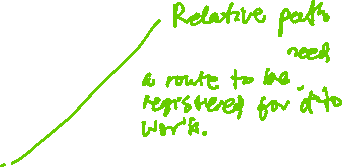 Relative path
need
a route to be
registered for it to
work.